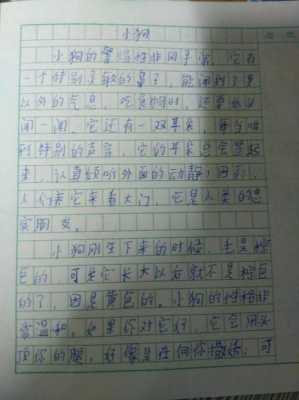 小狗
小狗的警惕性非同寻常，它有
一个特别灵敏的鼻子，能闻到了里
以外的气息，吃食物时，还要先
闻一闻，它还有一双耳朵，每当听
到特别的声音，它的耳朵总会竖起
来，认真倾听外面的动静，因此，
人们养它来看大门，它是人类的忠
实朋友。
小狗刚生下来的时候，毛是棕
色的，可是它长大以后就不是棕色
的了，因是黄色的。小狗的性格非
常温和，如果你对它好，它会用头
顶你的腿，好像是在向你撒娇；可